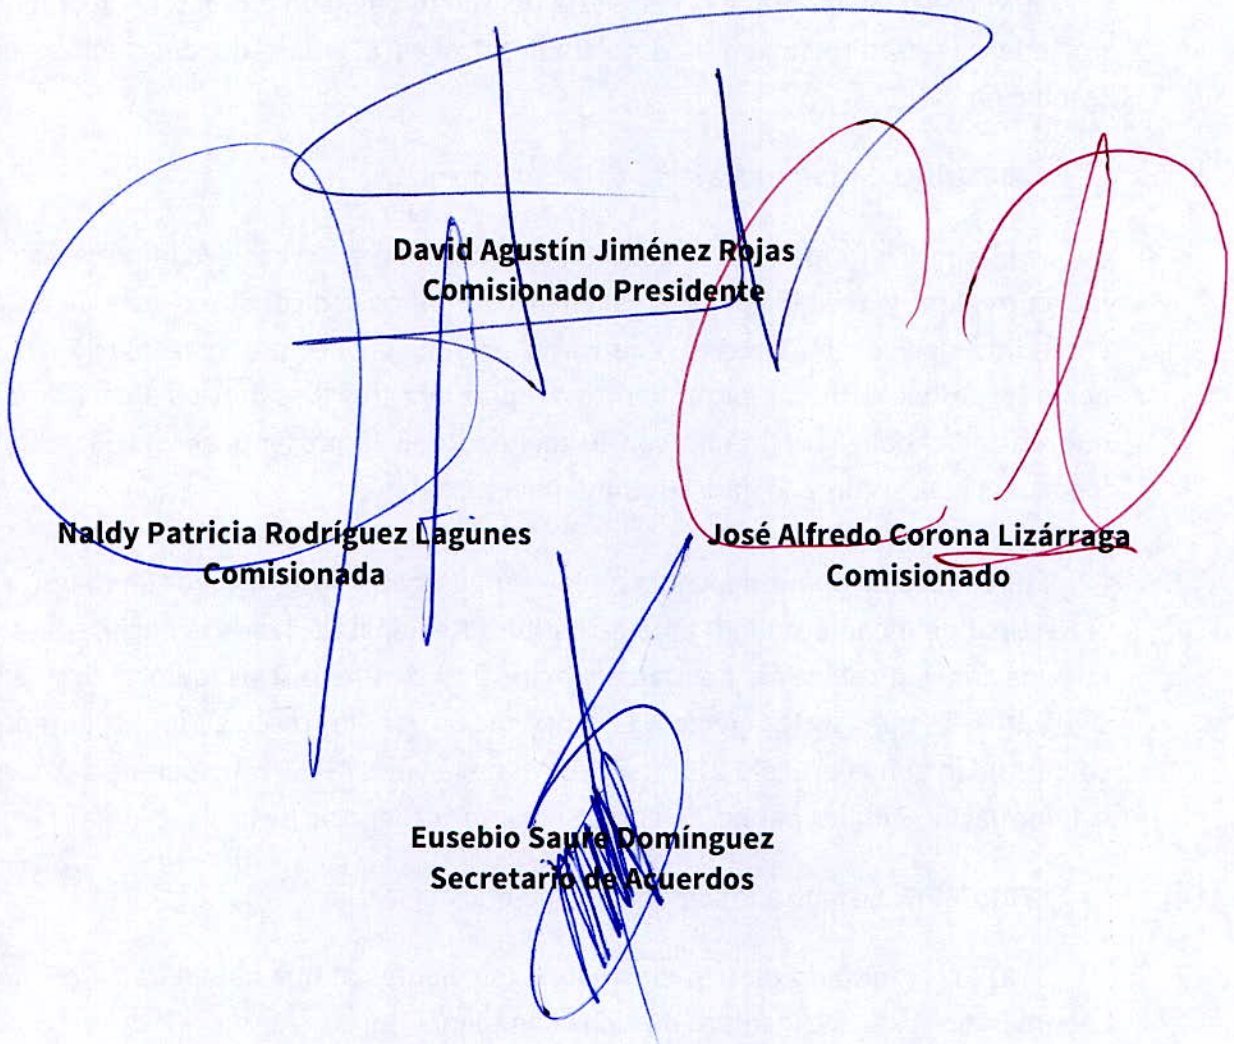 David Agustín Jiménez Rojas
Comisionado Presidente
Naldy Patricia Rodríguez Lagunes
Comisionada
José Alfredo Corona Lizárraga
Comisionado
Eusebio Saure Domínguez
Secretario de Acuerdos